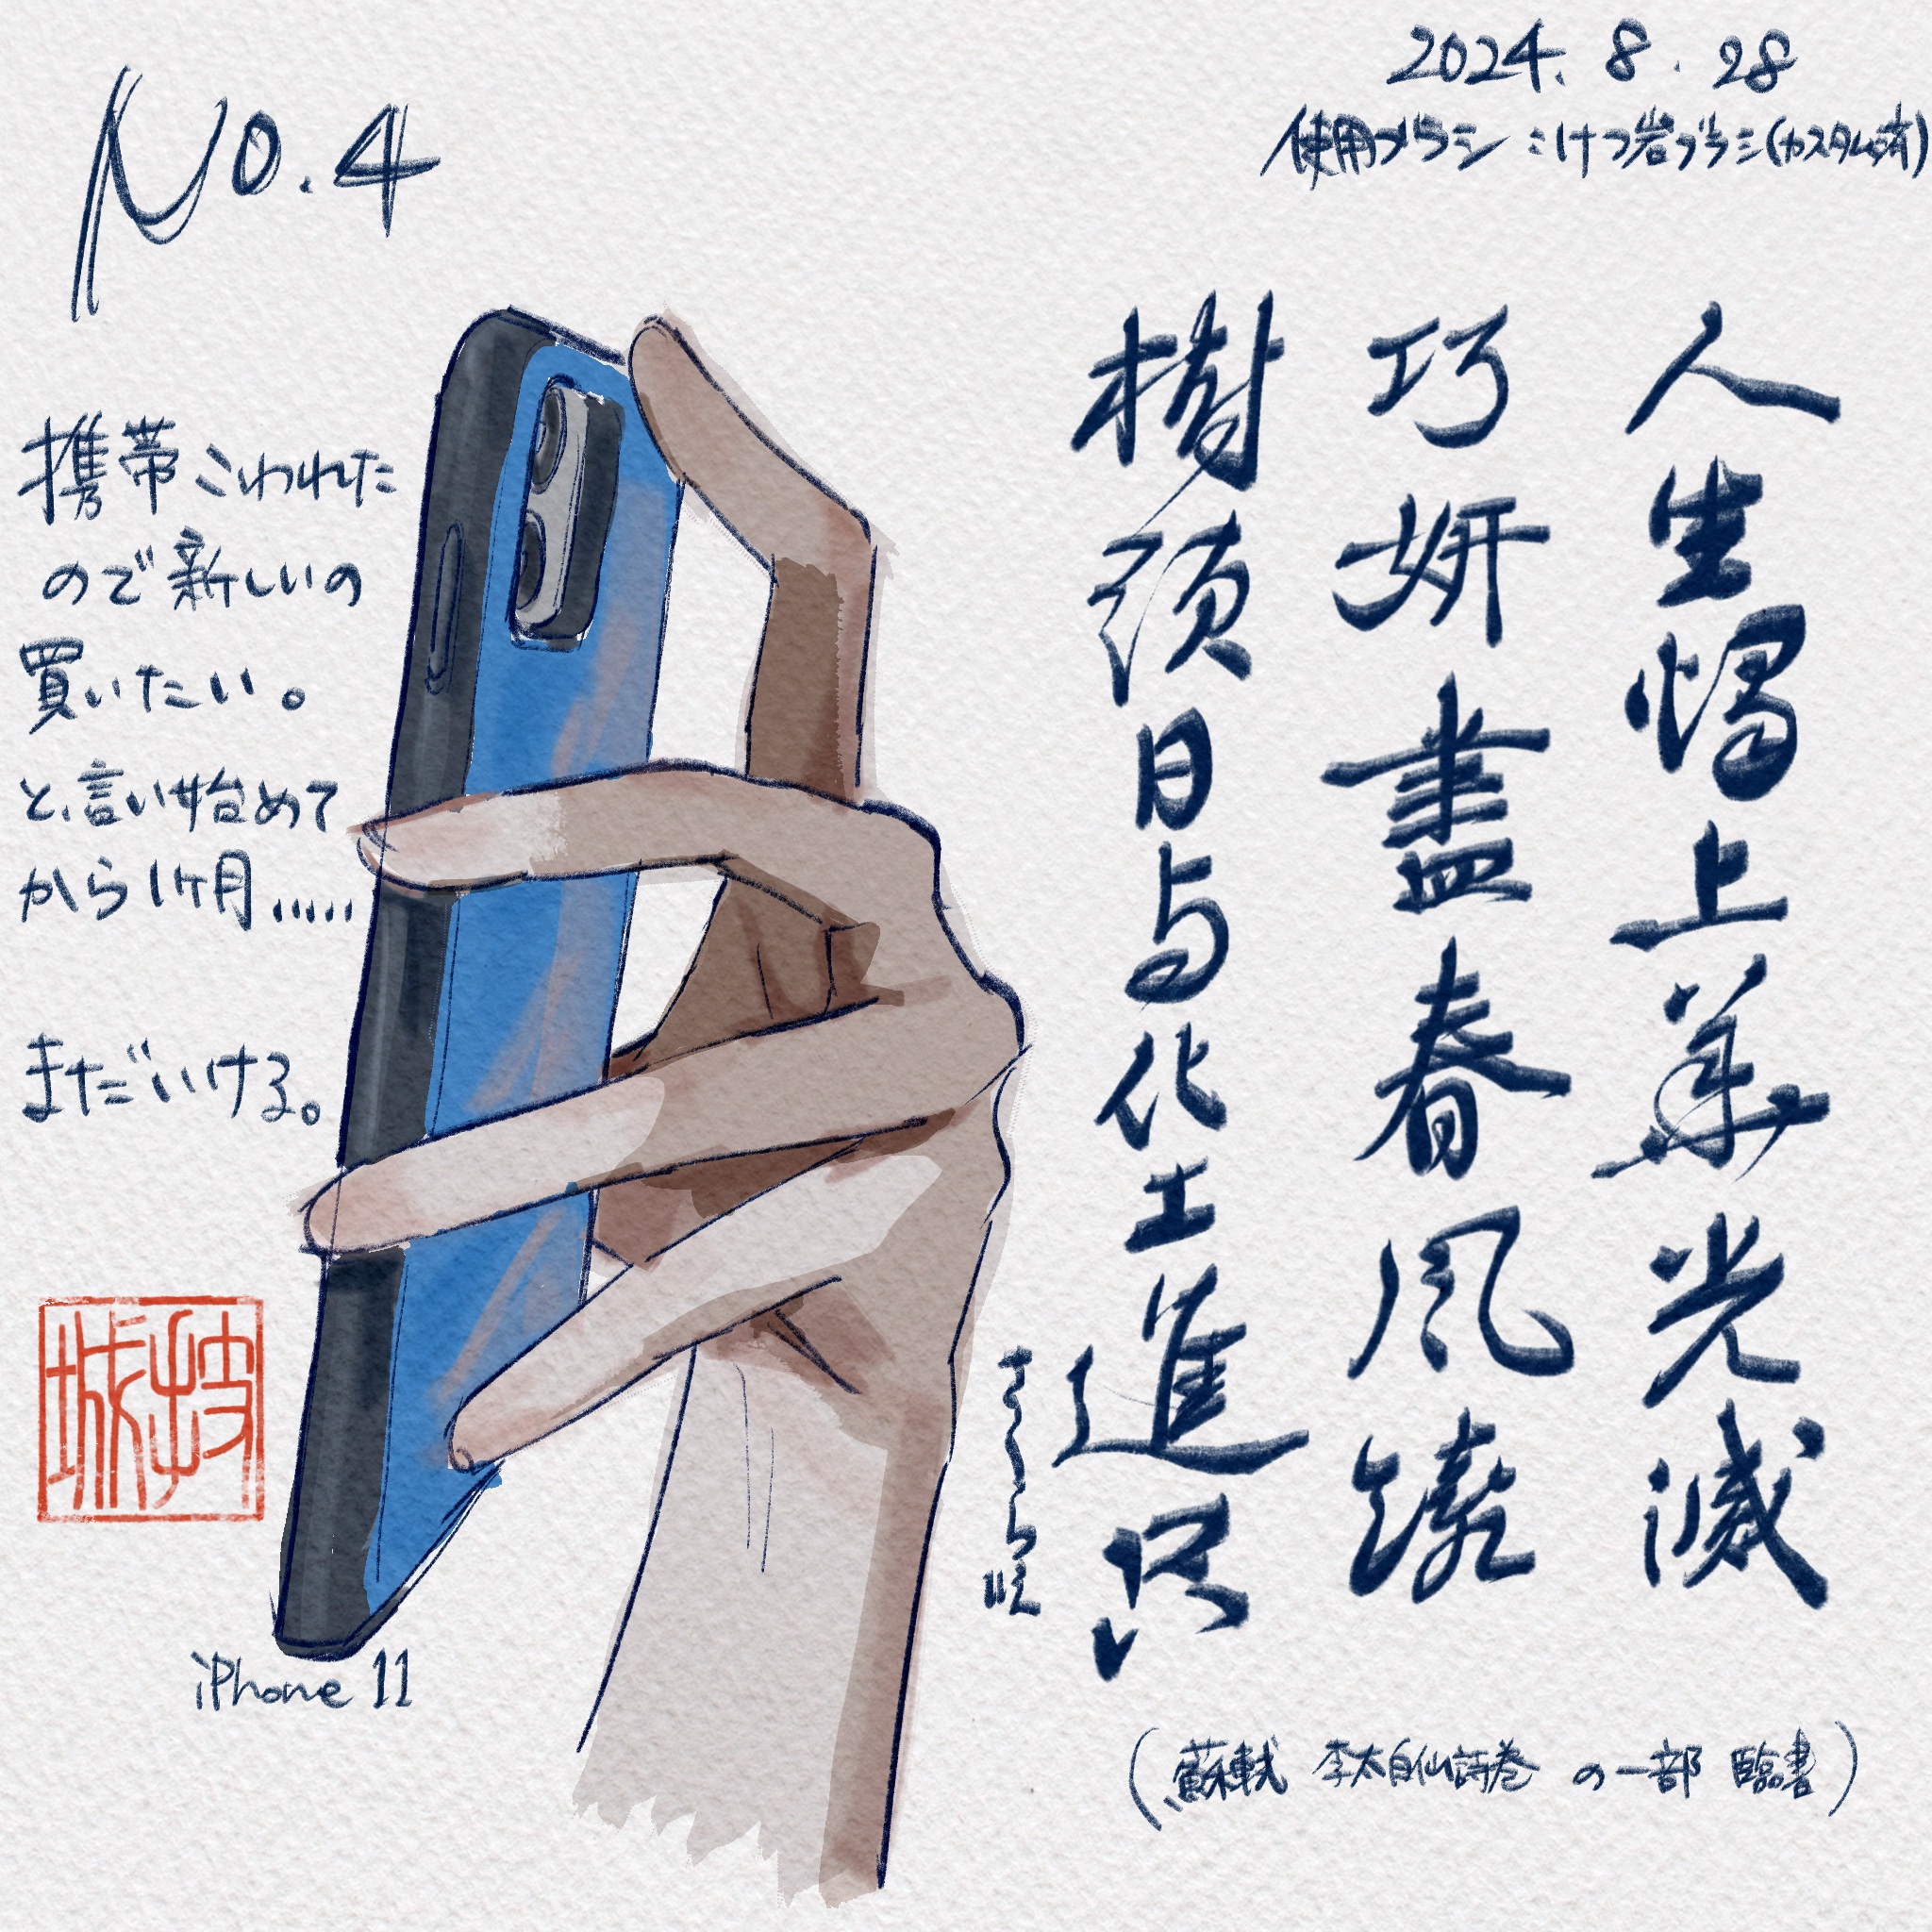 No.4
2024.8.28
使用ブラシ:けつ岩ブラシ(カスタム済)
人生燭上華光滅
巧妍盡春風繞
樹頭日与化工進只
きらら咲
携帯こわれた
ので新しいの
買いたい。
と、言い始めて
から1ヶ月.....
まだいける。
iPhone 11
(蘇軾 李太白仙詩巻 の一部 臨書)